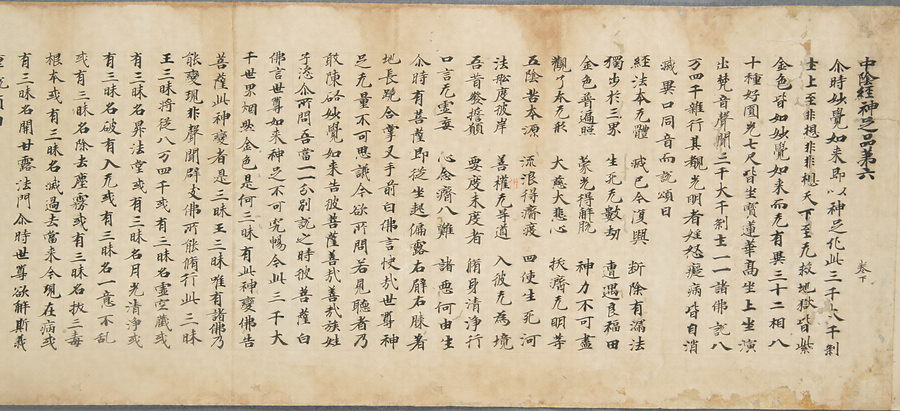 中陰經神足品第六 卷下
尒時妙覺如來即以神足化此三千大千剎
土上至非想非非想天下至无救地獄皆紫
金色皆如妙覺如來而无有異三十二相八
十種好圓光七尺皆坐寶蓮華高坐上坐演
出梵音聲聞三千大千剎土一一諸佛說八
万四千雜行其覩光明者婬怒癡病皆自消
滅異口同音而說頌曰
經法本无體 滅已令復興 斷除有漏法
獨步於三界 生死无數劫 遭遇良福田
金色普遍照 蒙光得解脫 神力不可盡
觀了本无形 大慈大悲心 救濟无明等
五陰苦本源 流浪得濟度 四使生死河
法船度彼岸 善權无导道 入彼无為境
吾昔發誓願 要度未度者 脩身清淨行
口言无虛妄 心念濟八難 諸惡何由生
尒時有菩薩即從坐起偏露右臂右膝著
地長跪合掌叉手前白佛言快哉世尊神
足无量不可思議今欲所問若見聽者乃
敢陳啟妙覺如來告彼菩薩善哉善哉族姓
子恣尒所問吾當一一分別說之時彼菩薩白
佛言世尊如來神足不可究暢令此三千大
千世界烟然金色是何三昧有此神變佛告
菩薩此神變者是三昧王三昧唯有諸佛乃
能變現非聲聞辟支佛所能脩行此三昧
王三昧將從八万四千或有三昧名虛空藏或
有三昧名昇法堂或有三昧名月光清淨或
有三昧名破有入无或有三昧名一意不乱
或有三昧名除去塵霧或有三昧名拔三毒
根本或有三昧名滅過去當來今現在病或
有三昧名開甘露法門尒時世尊欲解斯義